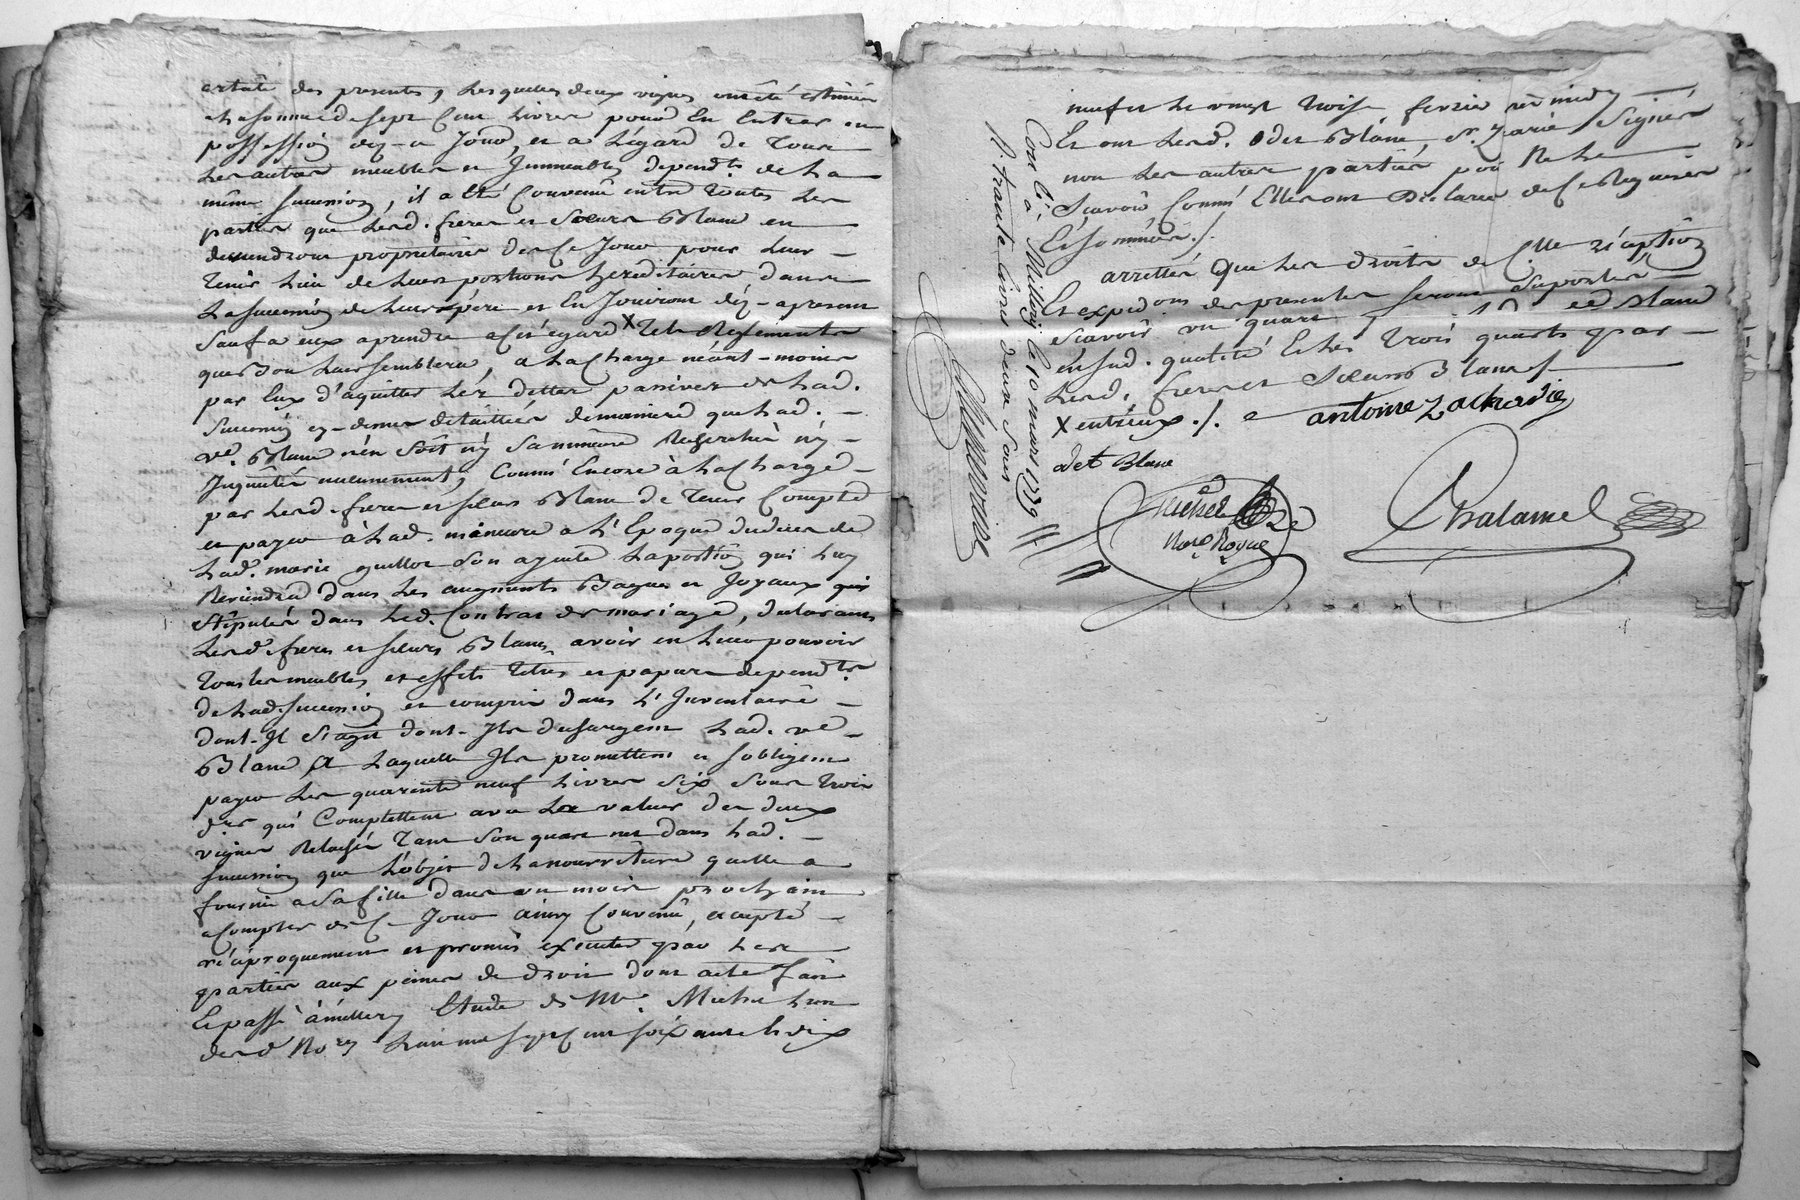 et état des presentes, Lesquelles deux vignes ont été estimées
a la somme de sept Cent Livres pour En Entrer en
possession dez-a Jour, et a Légard de Tous
Les autres meubles et Immeubles depend.ts de La
même succession, il a Eté Convenu entre Toutes Les
parties que Lesd. freres et soeurs Blanc en
demeureront proprietaires de ce Jour pour Leur
Tenir Lieu de Leurs portions hereditaires dans
La succession de Leur père et En Jouiront déz-apresent
sauf a eux aprendre a cet égard X Tels Reglements
que Bon Leur semblera, a La Charge néant-moins
par Eux d'aquitter Les dettes passives de Lad.
succession cy-dessus detaillées de maniere que Lad.
ve. Blanc n'en soit ny sa mineure Recherchée ny
Inquiétée nullement, Comme Encore à La Charge
par Lesd. freres et soeurs Blanc de Tenir Compte
et payer à Lad. mineure a L'Epoque du deces de
Lad. marie guillot son ayeule La portion qui Luy
Reviendra dans Les augments Bagues et Joyaux
stipulés dans Led. Contrat de mariage, declarants
Lesd. freres et soeurs Blanc avoir en Leur pouvoir
Tous Les meubles et effets Titres et papiers depend.ts
de Lad. succession et compris dans L'Inventaire
dont-Il s'agit dont-Ils dechargent Lad. ve
Blanc, A Laquelle Ils promettent et s'obligent
payer Les quarente neuf Livres six sous Trois
d.ers qui Complettent avec La valeur des deux
vignes Relachées Tant son quart net dans Lad.
succession que L'objet de La nourriture quelle a
fournie a sa fille dans un mois prochain
a Compter de Ce Jour ainsy Convenu, accepté
réciproquement et promis exécuter par Les
parties aux peines de droit dont acte fait
Et passé à millery Etude de Me. Michel L'un
desd. No.res L'an mil sept cent soixante dix
neuf et Le vingt Trois fevrier
Et ont Lesd. odet Blanc, Sr. Zarié Signés
non Les autres parties pour Ne Le
Scavoir Comme Elles ont Déclaré de Ce Requises
Et sommées ./.
arretté que Les droits de Réception
Et expedons des presentes seront suportés
scavoir un quart Blanc
en sad. qualité Et Les Trois quarts par
Lesd. freres et soeurs Blanc
X entr'eux ./. antoine Zacharie
odet Blanc
Michel
Nore. Royal
Chalamel
Con lé à Millery le 10 mars 1779